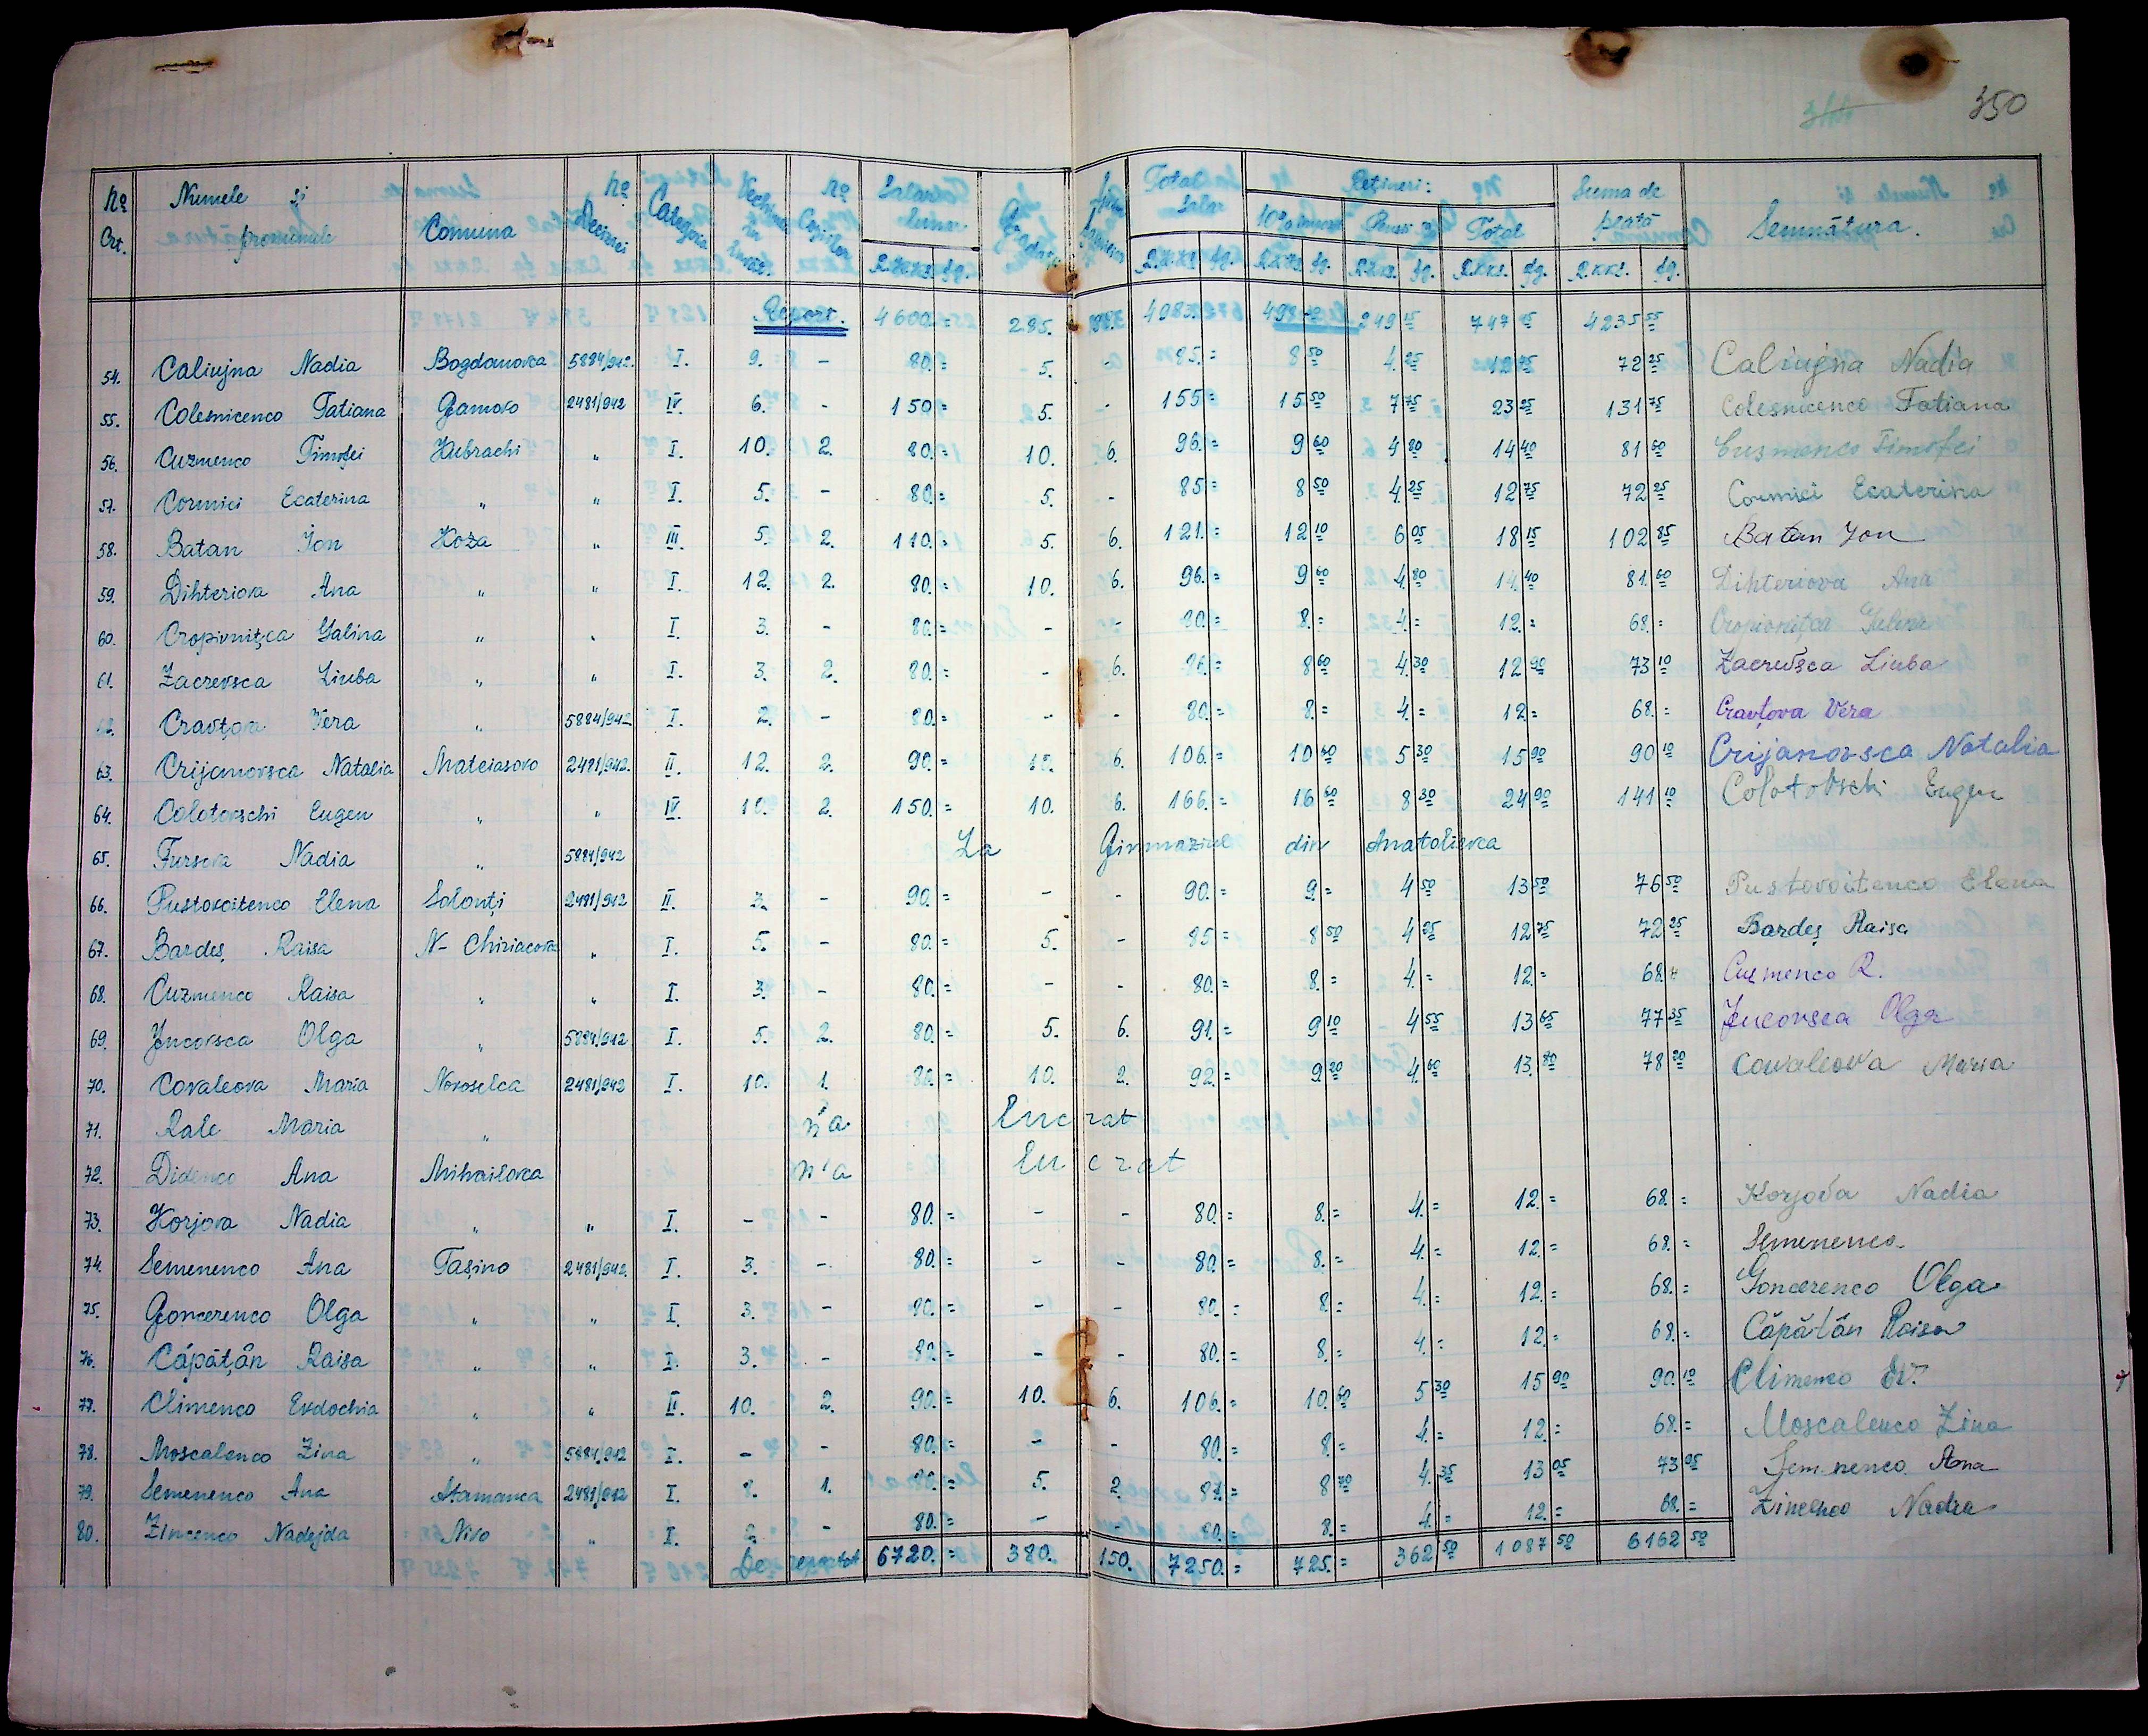 350
No Crt. Numele și pronumele Comuna No Deciziei Categoria No Copiilor Salar lunar Total Salar Rețineri: Suma de plată Semnătura.
10% Total
R.K.K.S. fg. R.K.K.S. fg. R.K.K.S. fg. R.K.K.S. fg. R.K.K.S. fg. R.K.K.S. fg.
Report. 4600.= 285. 249 15 747 45 4235 55
54. Caliujna Nadia Bogdanovca 5884/942. I. 9. - 80.= 5. - 85.= 8 50 4.25 12 75 72 25 Caliujna Nadia
55. Colesnicenco Tatiana Gamovo 2481/942 IV 6. - 150= 5. - 155= 15 50 7 75 23 25 131 75 Colesnicenco Tatiana
56. Cuzmenco Timofei Hubrachi " I. 10. 2. 80.= 10. 6. 96.= 9 60 4 80 14 40 81 60 Cusmenco Timofei
57. Cormici Ecaterina " " I. 5. - 80.= 5. - 85= 8 50 4.25 12 75 72 25 Cormici Ecaterina
58. Batan Ion Hoza " III. 5. 2. 110.= 5. 6. 121.= 12 10 6 05 18 15 102 85 Batan Ion
59. Dihteriova Ana " " I. 12. 2. 80.= 10. 6. 96.= 9 60 4.80 14.40 81.60 Dihteriova Ana
60. Cropivnițca Galina " " I 3. - 80.= - - 80= 8.= 4.= 12.= 68.= Cropivnițca Galina
61. Zacrevsca Liuba " " I. 3. 2. 80.= - 6. 86.= 8 60 4.30 12 90 73 10 Zacrevsca Liuba
62. Cravțova Vera " 5884/942 I. 2. - 80.= - - 80.= 8.= 4.= 12= 68.= Cravțova Vera
63. Crijanovsca Natalia Mateiasovo 2481/942. II. 12. 2. 90.= 10. 6. 106.= 10 60 5 30 15 90 90 10 Crijanovsca Natalia
64. Colotovschi Eugen " " IV. 10. 2. 150.= 10. 6. 166.= 16 60 8 30 24 90 141 10 Colotovschi Eugen
65. Fursova Nadia " 5884/942 La Gimnaziul din Anatolievca
66. Pustovoitenco Elena Solonți 2481/942 II. 3. - 90.= - - 90.= 9.= 4 50 13 50 76 50 Pustovoitenco Elena
67. Bardeș Raisa N- Chiriacova " I. 5. - 80.= 5. - 85= 8 50 4 25 12 75 72 25 Bardeș Raisa
68. Cuzmenco Raisa " " I. 3. - 80.= - - 80.= 8.= 4.= 12.= 68.= Cuzmenco R.
69. Jucovsca Olga " 5884/942 I. 5. 2. 80.= 5. 6. 91.= 9 10 4 55 13 65 77 35 Jucovsca Olga
70. Covaleova Maria Novoselca 2481/942 I. 10. 1. 80.= 10. 2. 92.= 9.20 4.60 13.80 78 20 Covaleova Maria
71. Rale Maria " n'a lucrat
72. Didenco Ana Mihailovca n'a lucrat
73. Korjova Nadia " " I. - - 80.= - - 80.= 8.= 4.= 12.= 68.= Korjova Nadia
74. Semenenco Ana Tașino 2481/942. I. 3. - 80.= - - 80.= 8.= 4.= 12.= 68.= Semenenco
75. Goncerenco Olga " " I. 3. - 80.= - - 80.= 8.= 4.= 12.= 68.= Goncerenco Olga
76. Căpățân Raisa " " I. 3. - 80.= - - 80.= 8.= 4.= 12.= 68.= Căpățân Raisa
77. Climenco Evdochia " " II. 10. 2. 90.= 10. 6. 106.= 10.60 5 30 15 90 90.10 Climenco Ev.
78. Moscalenco Zina " 5884/942 I. - - 80.= - - 80.= 8.= 4.= 12.= 68.= Moscalenco Zina
79. Semenenco Ana Atamanca 2481/942 I. 8. 1. 80.= 5. 2. 87.= 8 70 4.35 13 05 73 95 Semenenco Ana
80. Zincenco Nadejda Nivo " I. 2. - 80.= - - 80.= 8.= 4.= 12.= 68.= Zincenco Nadea
De reportat 6720.= 380. 150. 7250.= 725.= 362 50 1087 50 6162 50